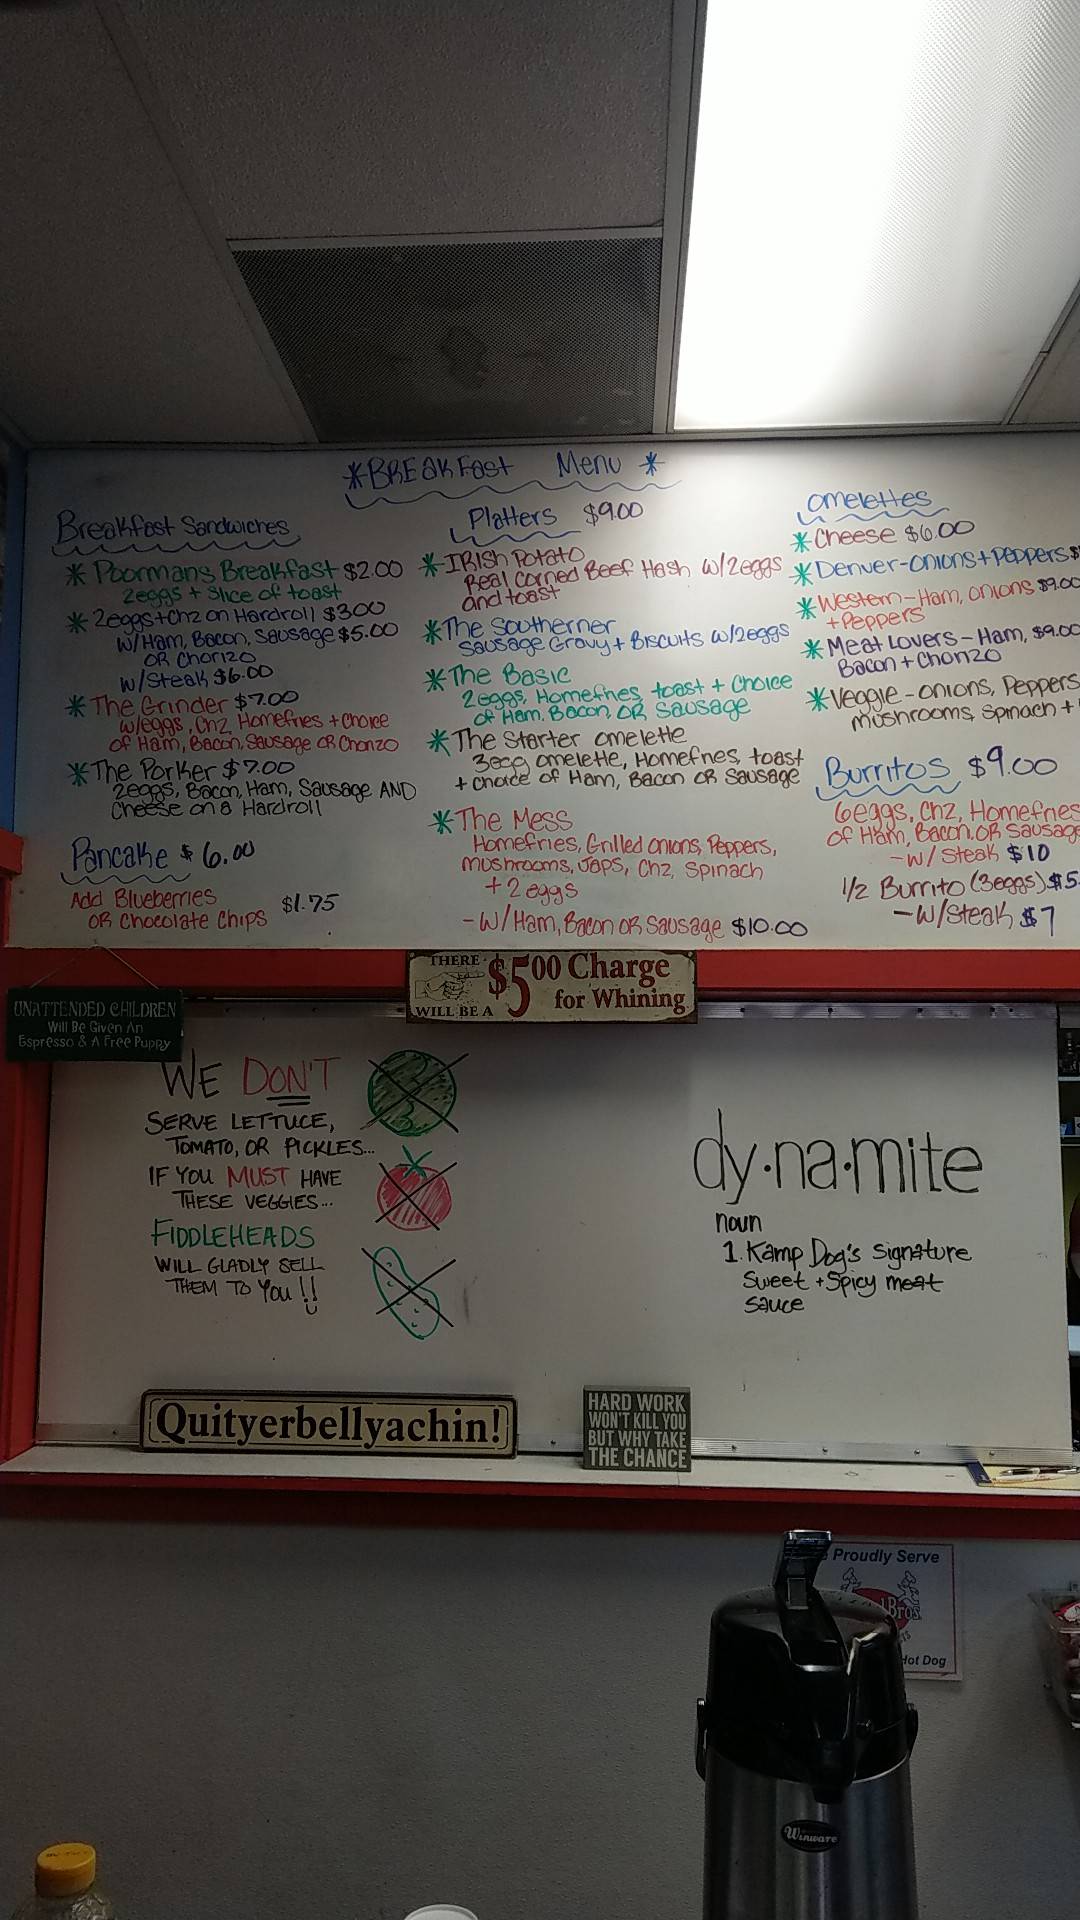 *BREAKFAST Menu*
Breakfast Sandwiches
* Poormans Breakfast $2.00
2eggs + Slice of toast
* 2eggs+chz on Hardroll $3.00
w/Ham, Bacon, Sausage $5.00
OR Chorizo
w/Steak $6.00
* The Grinder $7.00
w/eggs, Chz, Homefries + choice
of Ham, Bacon, Sausage OR Chorizo
* The Porker $7.00
2eggs, Bacon, Ham, Sausage AND
Cheese on a Hardroll
Pancake $6.00
Add Blueberries
OR Chocolate Chips $1.75
Platters $9.00
* IRISH Potato
Real Corned Beef Hash w/2eggs
and toast
* The Southerner
Sausage Gravy + Biscuits w/2eggs
* The Basic
2eggs, Homefries, toast + Choice
of Ham, Bacon, OR Sausage
* The Starter omelette
3egg omelette, Homefries, toast
+ choice of Ham, Bacon OR Sausage
* The Mess
Homefries, Grilled onions, Peppers,
mushrooms, Japs, Chz, Spinach
+ 2 eggs
- W/Ham, Bacon OR Sausage $10.00
omelettes
* Cheese $6.00
* Denver-onions+Peppers $
* Western-Ham, onions $9.00
+Peppers
* Meat Lovers-Ham, $9.00
Bacon + Chorizo
* Veggie-onions, Peppers
mushrooms, Spinach +
Burritos $9.00
6eggs, Chz, Homefries
of Ham, Bacon, OR Sausag
-w/Steak $10
1/2 Burrito (3eggs) $5.
-w/Steak $7
THERE
WILL BE A
$5.00 Charge
for Whining
UNATTENDED CHILDREN
Will Be Given An
Espresso & A Free Puppy
WE DON'T
SERVE LETTUCE,
TOMATO, OR PICKLES...
IF YOU MUST HAVE
THESE VEGGIES...
FIDDLEHEADS
WILL GLADLY SELL
THEM TO YOU!!
dy·na·mite
noun
1. Kamp Dog's Signature
Sweet + Spicy meat
sauce
Quityerbellyachin!
HARD WORK
WON'T KILL YOU
BUT WHY TAKE
THE CHANCE
Proudly Serve
Bros.
Hot Dog
Winware